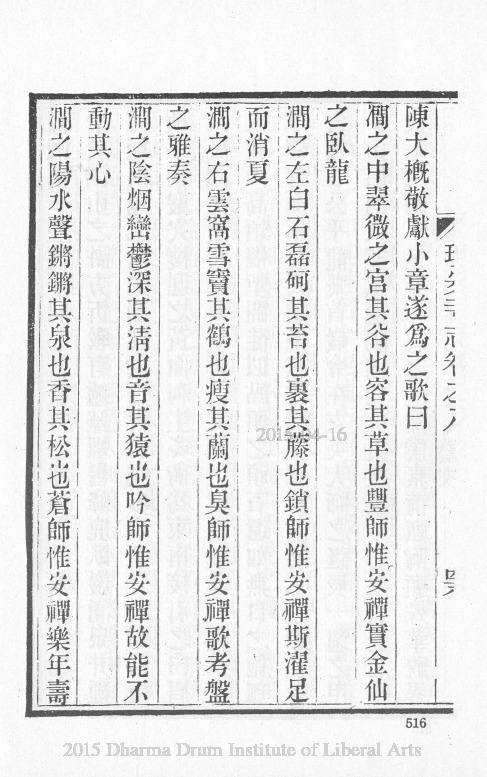 陳大槪敬獻小章遂爲之歌曰
澗之中翠微之宫其谷也容其草也豐師惟安禪實金仙
之臥龍
澗之左白石磊砢其苔也裹其藤也鎖師惟安禪斯濯足
而消夏
澗之右雲窩雪竇其鶴也瘦其蘭也臭師惟安禪歌考盤
之雅奏
澗之陰烟巒鬱深其淸也音其猿也吟師惟安禪故能不
動其心
澗之陽水聲鏘鏘其泉也香其松也蒼師惟安禪樂年壽
2015-04-16
516
2015 Dharma Drum Institute of Liberal Arts